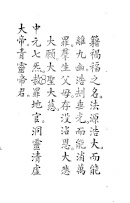 籍禍福之名法源浩大而能
離九幽浩劫垂光而能消萬
罪羣生父母存没沾恩大慈
大願大聖大慈
中元七炁赦罪地官洞靈清虛
大帝青靈帝君